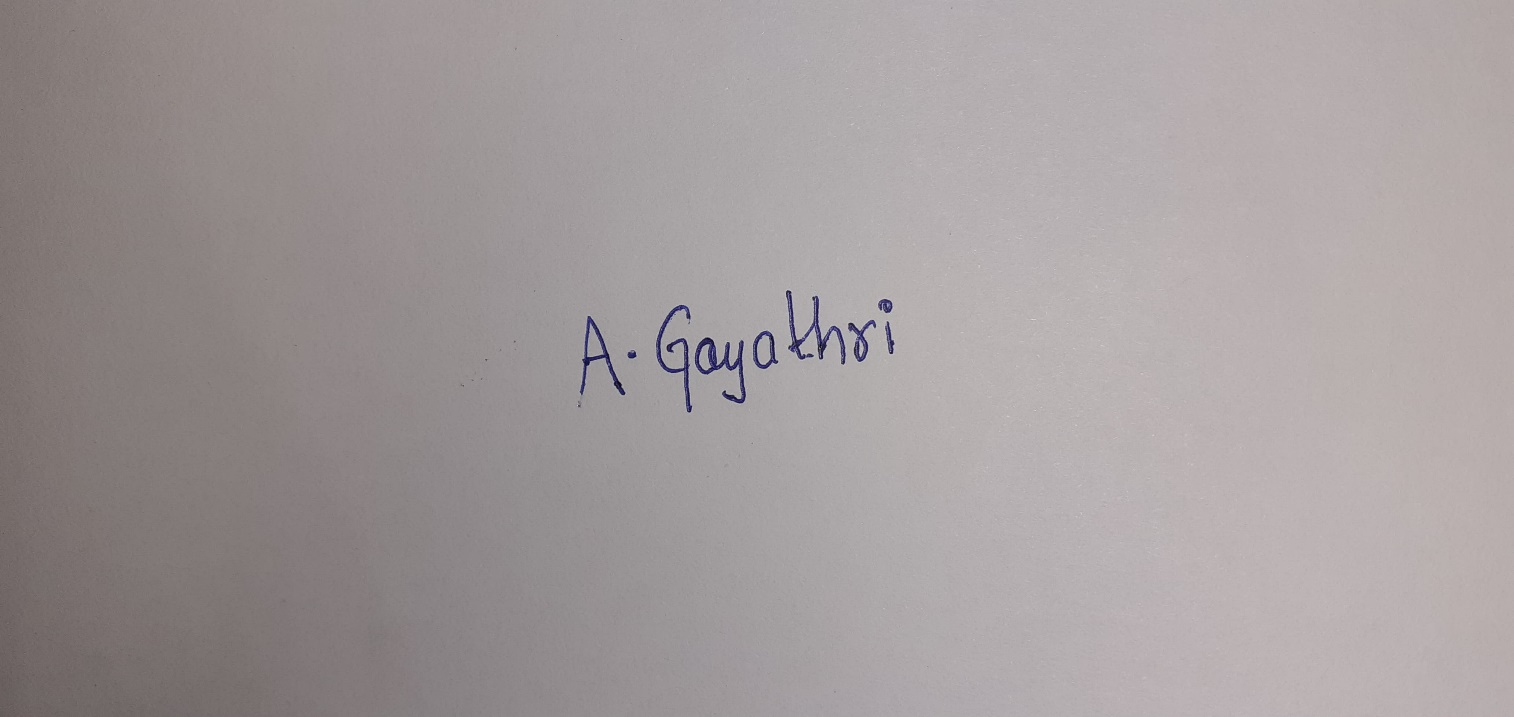 A. Gayathri